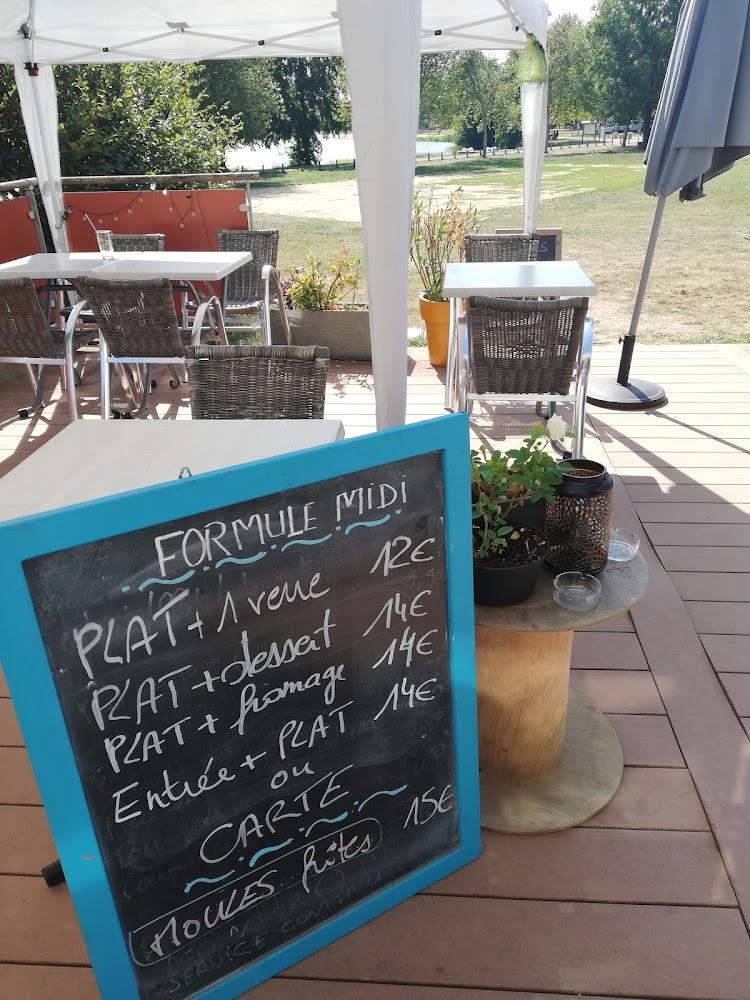 FORMULE MIDI
PLAT + 1 verre 12€
PLAT + dessert 14€
PLAT + fromage 14€
Entrée + PLAT 14€
ou
CARTE
MOULES frites 15€
SERVICE CONTINU